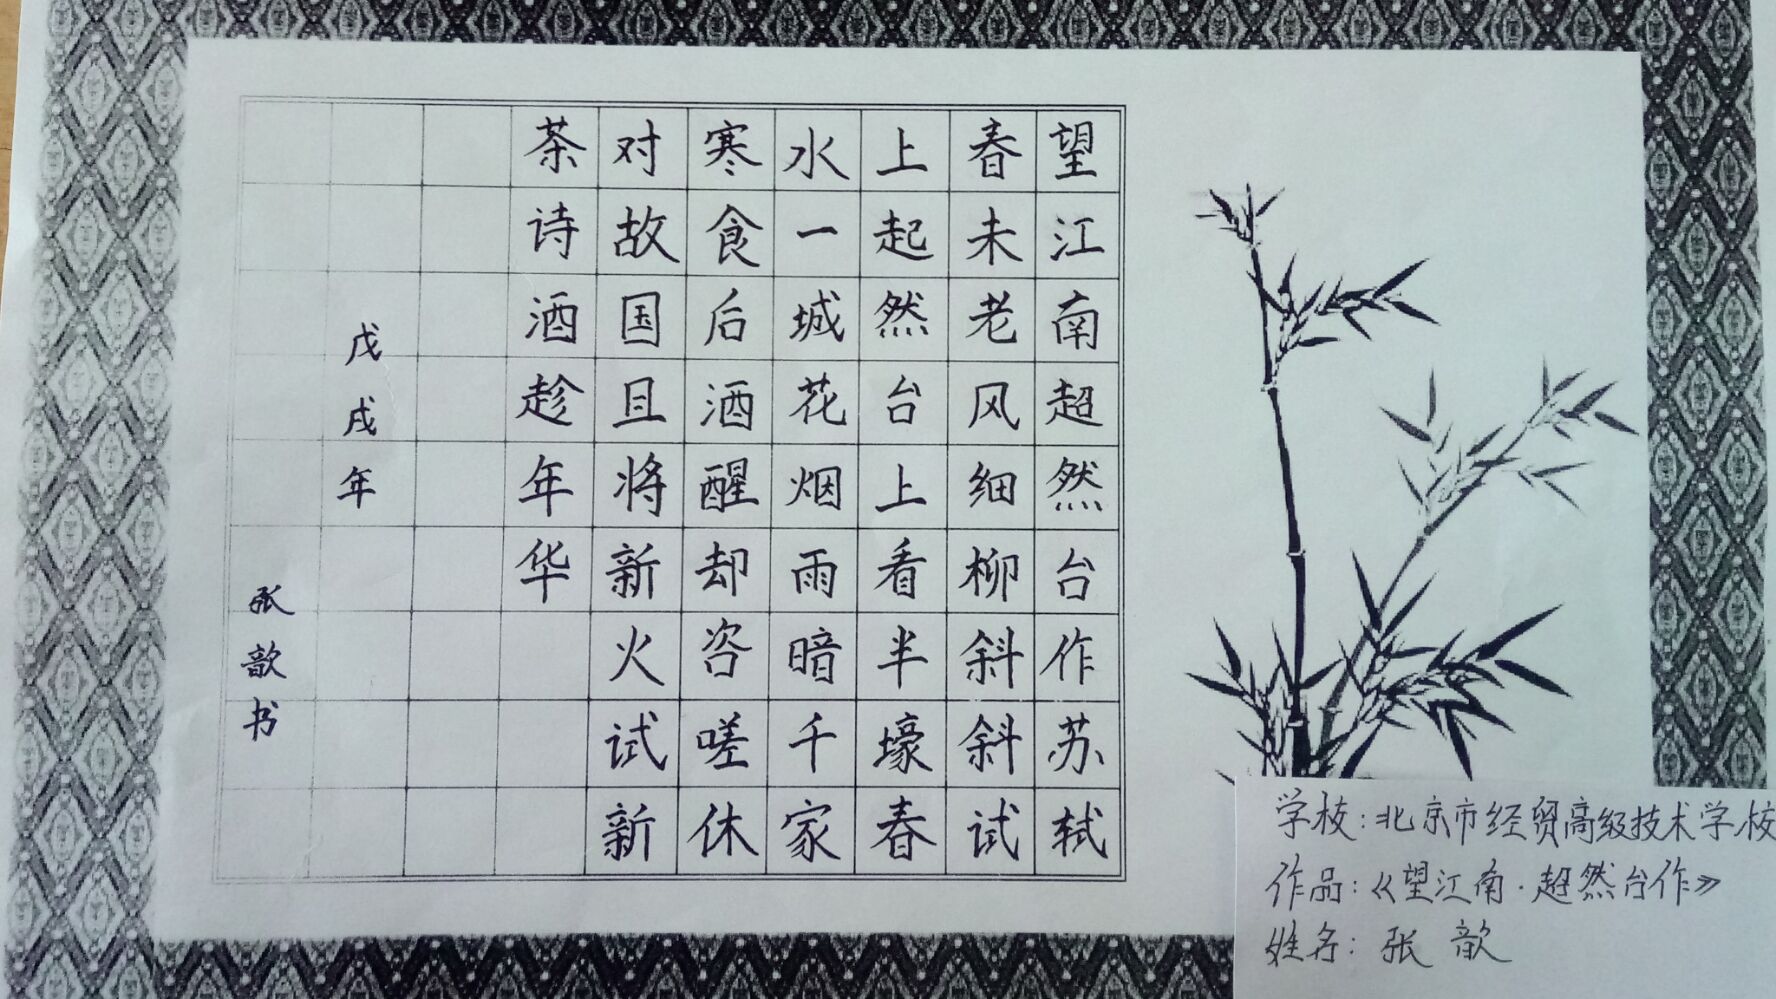 望江南超然台作苏轼
春未老风细柳斜斜试
上起然台上看半壕春
水一城花烟雨暗千家
寒食后酒醒却咨嗟休
对故国且将新火试新
茶诗酒趁年华
戊戌年
张歆书
学校:北京市经贸高级技术学校
作品:《望江南·超然台作》
姓名:张 歆